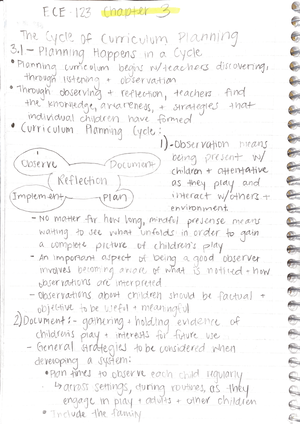 ECE-123 Chapter 3
The Cycle of Curriculum Planning
3.1 - Planning Happens in a Cycle
• Planning curriculum begins w/teachers discovering,
through listening + observation
• Through observing + reflection, teachers find
the knowledge, awareness, + strategies that
individual children have formed
• Curriculum Planning Cycle:
Observe
Document
Reflection
Implement
Plan
1) - Observation means
being present w/
children + attentative
as they play and
interact w/others +
environment
- No matter for how long, mindful presense means
waiting to see what unfolds in order to gain
a complete picture of children's play
- An important aspect of being a good observer
involves becoming aware of what is noticed + how
observations are interpreted
- Observations about children should be factual +
objective to be useful + meaningful
2) Document: - gathering + holding evidence of
children's play + interests for future use
- General strategies to be considered when
developing a system:
• Plan times to observe each child regularly
↳ across settings, during routines, as they
engage in play + adults + other children
• Include the family